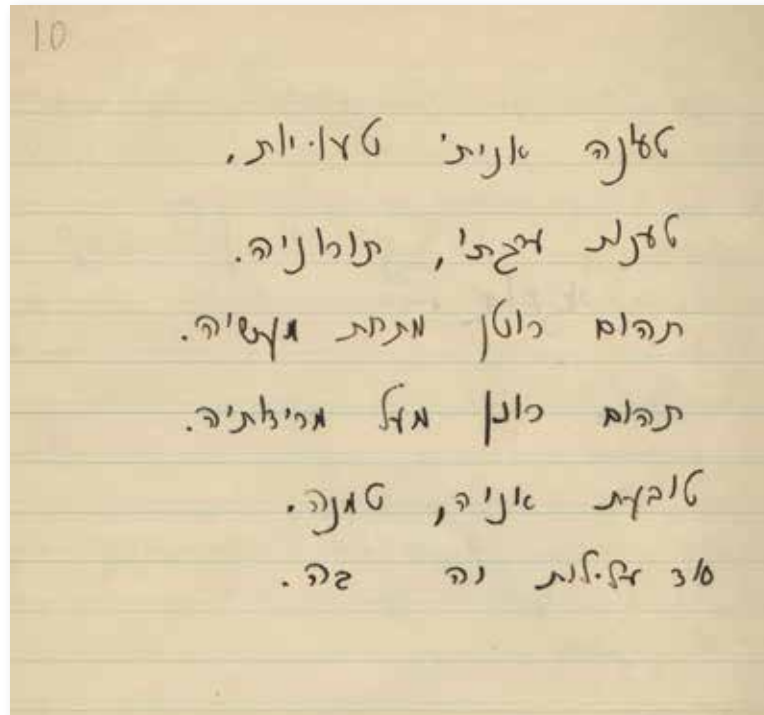 10
טענה אניתי טעויות,
טענות ערגתי, תורניה.
תהום רוטן מתחת מעשיה.
תהום רונן מעל מריצותיה.
טובעת אניה, טמנה.
סוד עלילות נה בה.